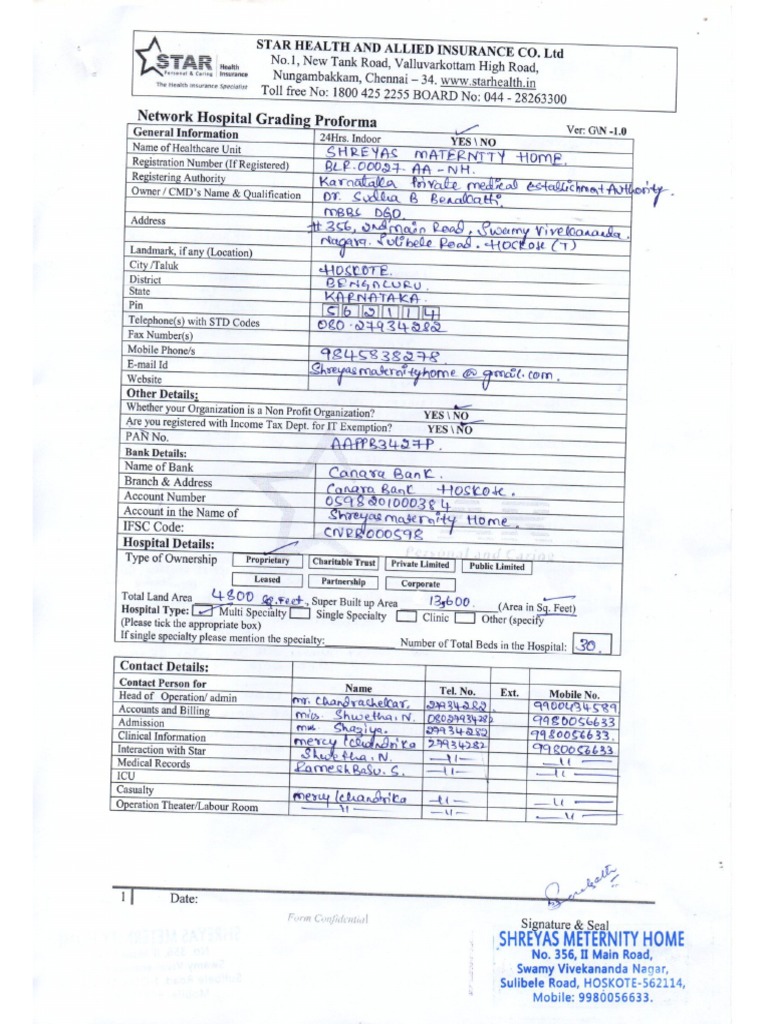 STAR HEALTH AND ALLIED INSURANCE CO. Ltd
No.1, New Tank Road, Valluvarkottam High Road,
Nungambakkam, Chennai – 34. www.starhealth.in
Toll free No: 1800 425 2255 BOARD No: 044 - 28263300
STAR Health Insurance
Personal & Caring
The Health Insurance Specialist
Network Hospital Grading Proforma
Ver: G\N -1.0
General Information 24Hrs. Indoor YES \ NO
Name of Healthcare Unit SHREYAS MATERNTTY HOME.
Registration Number (If Registered) BLR.00027.AA-NH.
Registering Authority Karnataka Private medical establishment Authority.
Owner / CMD's Name & Qualification Dr. Sudha B Benakatti
MBBS DGO.
Address # 356, 2nd main Road, Swamy Vivekananda.
Nagara. Sulibele Road. HOSKOTE (T)
Landmark, if any (Location)
City /Taluk HOSKOTE.
District BENGALURU.
State KARNATAKA.
Pin 562114
Telephone(s) with STD Codes 080-27934282
Fax Number(s)
Mobile Phone/s 9845838278
E-mail Id Shreyasmaternityhome@gmail.com.
Website
Other Details:
Whether your Organization is a Non Profit Organization? YES \ NO
Are you registered with Income Tax Dept. for IT Exemption? YES \ NO
PAN No. AAPPB3427P.
Bank Details:
Name of Bank Canara Bank.
Branch & Address Canara Bank HOSKOTE.
Account Number 0598201000384
Account in the Name of Shreyasmaternity Home.
IFSC Code: CNRB000598
Personal and Caring
Hospital Details:
Type of Ownership Proprietary Charitable Trust Private Limited Public Limited
Leased Partnership Corporate
Total Land Area 4800 Sq.Feet., Super Built up Area 13,600. (Area in Sq. Feet)
Hospital Type: Multi Specialty Single Specialty Clinic Other (specify
(Please tick the appropriate box)
If single specialty please mention the specialty: Number of Total Beds in the Hospital: 30.
Contact Details:
Contact Person for Name Tel. No. Ext. Mobile No.
Head of Operation/ admin mr. Chandrashekar. 27934282 9900434589
Accounts and Billing miss. Shwetha.N. 08027934282 9980056633
Admission Shaziya. 27934282 9980056633.
Clinical Information mercy/chandrika 27934282 9980056633
Interaction with Star Shwetha.N. -11- -11-
Medical Records RameshBabu.S. -11- -11-
ICU
Casualty mercy/chandrika -11- -11-
Operation Theater/Labour Room -11- -11- -11-
1 Date:
Form Confidential
Signature & Seal
SHREYAS METERNITY HOME
No. 356, II Main Road,
Swamy Vivekananda Nagar,
Sulibele Road, HOSKOTE-562114,
Mobile: 9980056633.